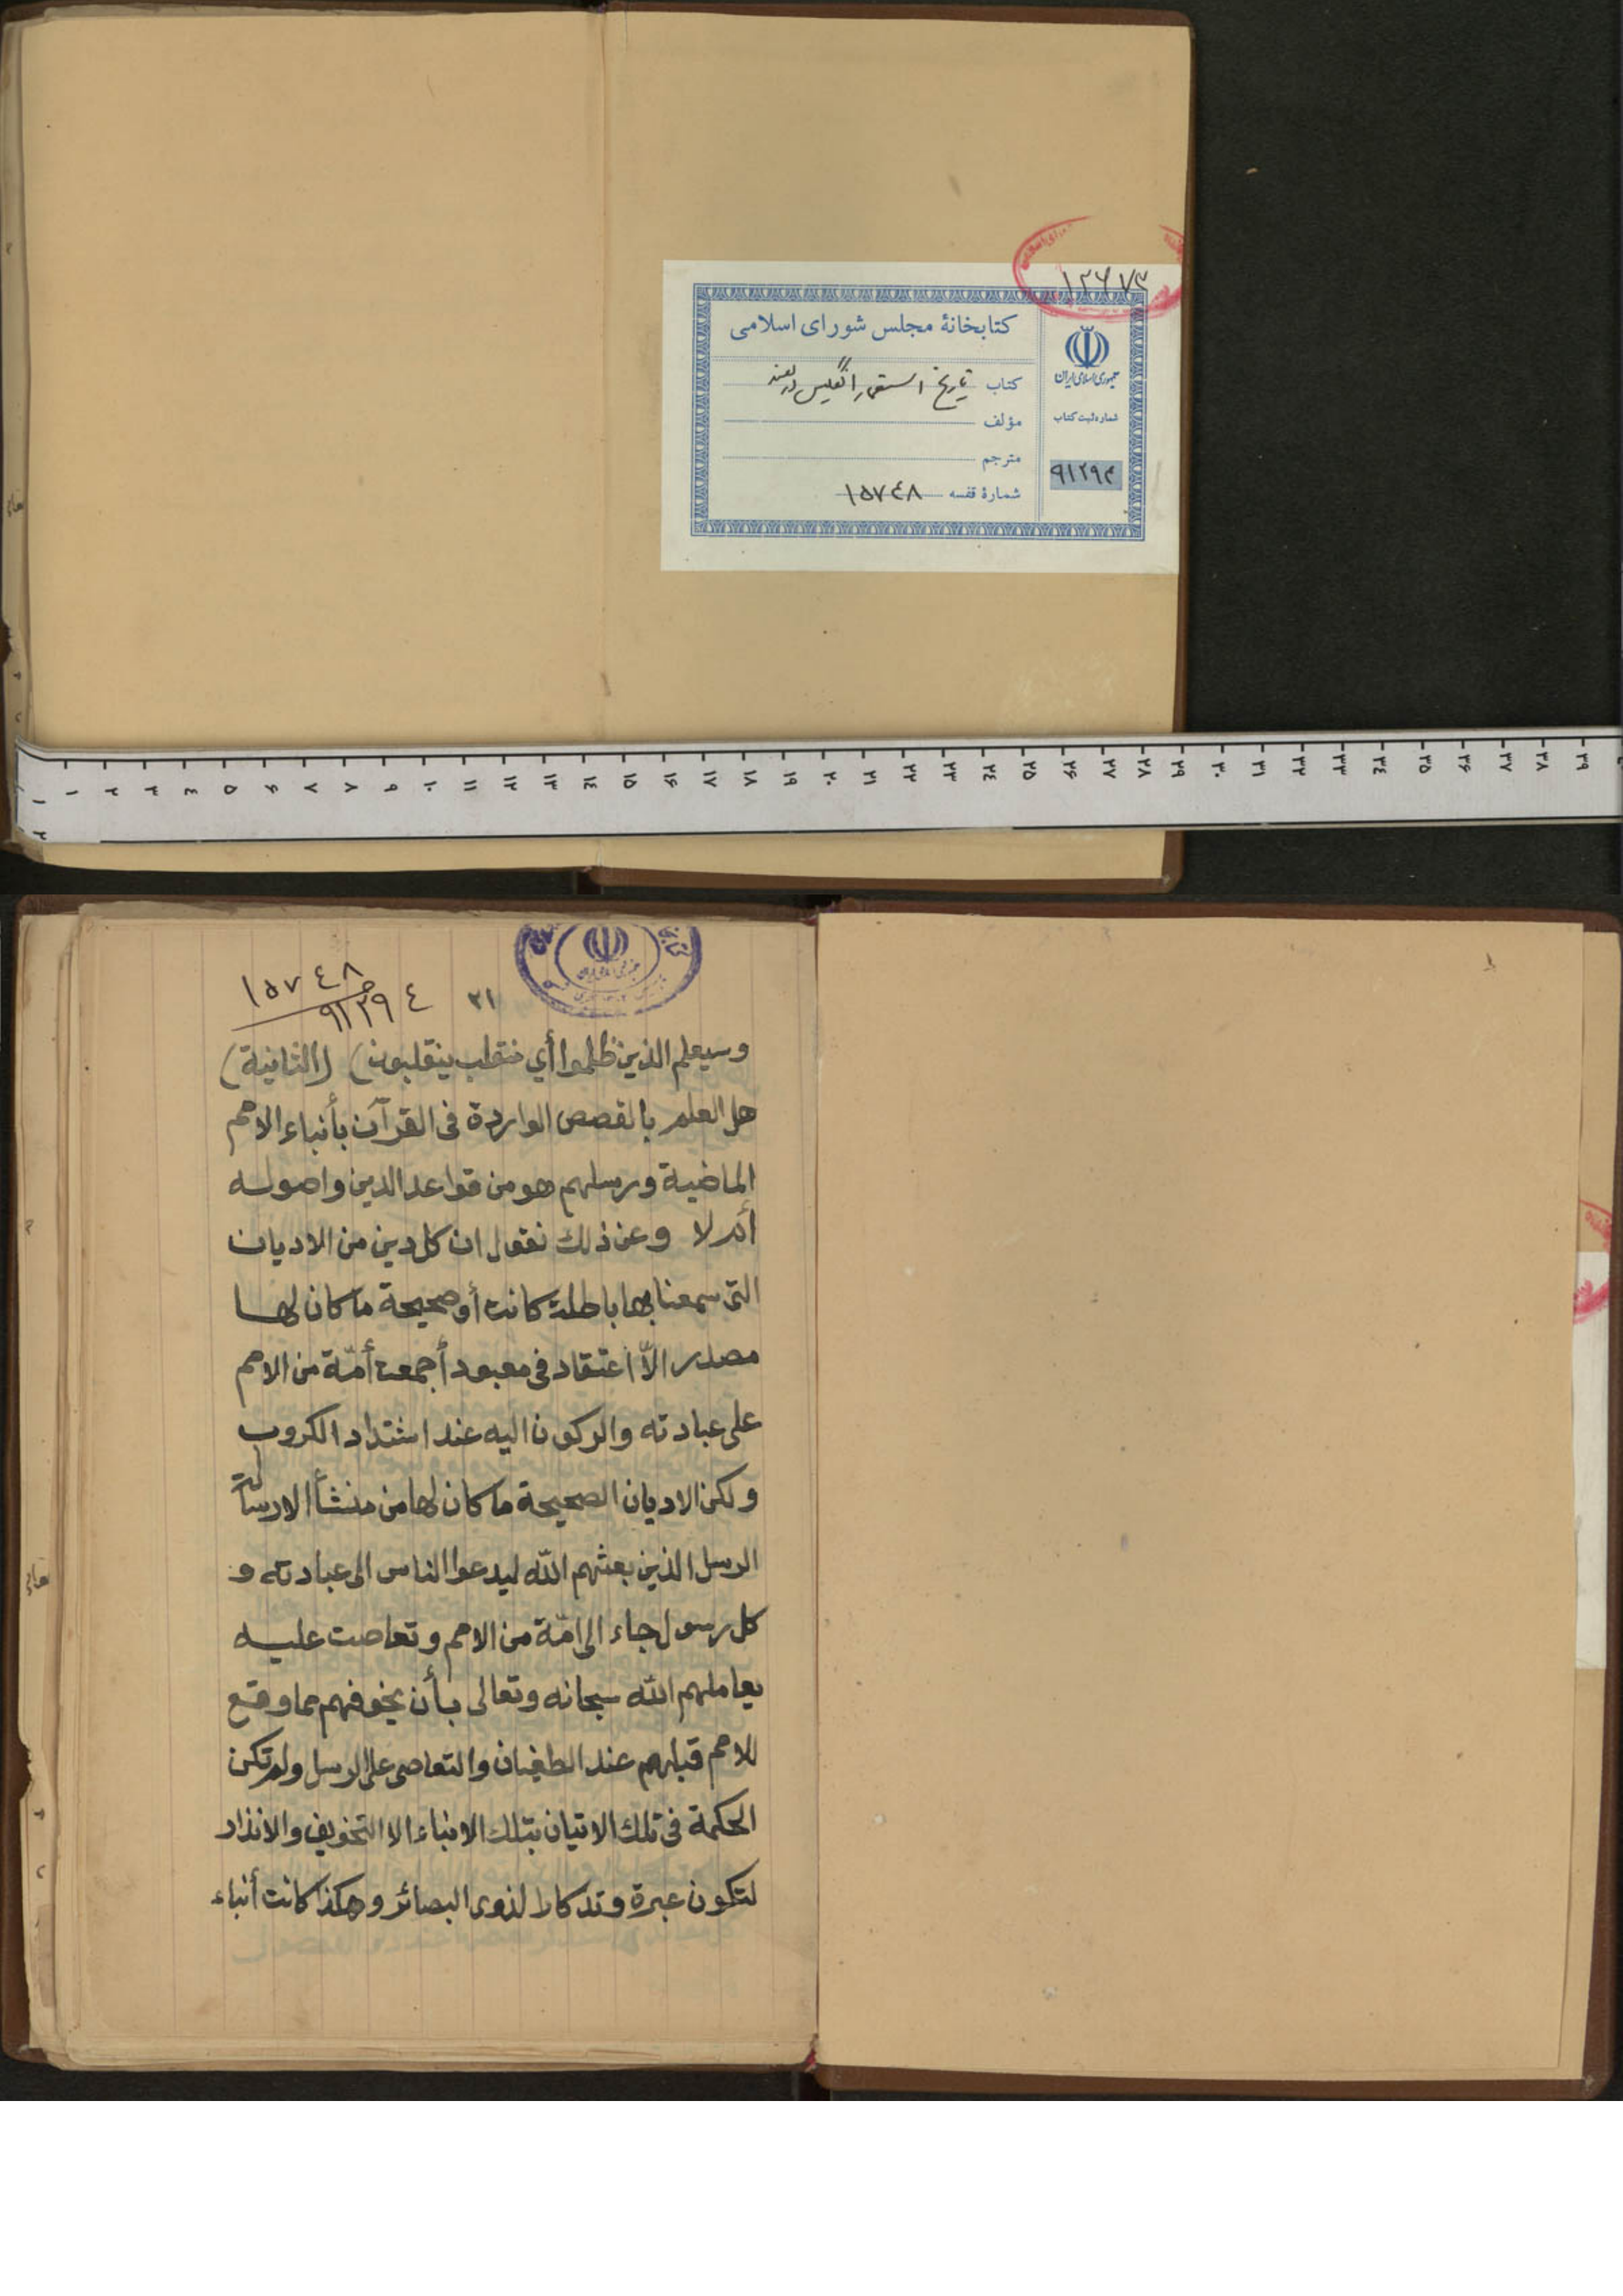 ۱۲۶۷۳
کتابخانهٔ مجلس شورای اسلامی
کتاب تاریخ استعمار انگلیس در هند
مؤلف
مترجم
شمارهٔ قفسه ۱۵۷۴۸
جمهوری اسلامی ایران
شماره ثبت کتاب
۹۱۲۹۴
۱ ۲ ۳ ۴ ۵ ۶ ۷ ۸ ۹ ۱۰ ۱۱ ۱۲ ۱۳ ۱۴ ۱۵ ۱۶ ۱۷ ۱۸ ۱۹ ۲۰ ۲۱ ۲۲ ۲۳ ۲۴ ۲۵ ۲۶ ۲۷ ۲۸ ۲۹ ۳۰ ۳۱ ۳۲ ۳۳ ۳۴ ۳۵ ۳۶ ۳۷ ۳۸ ۳۹
۱۵۷۴۸
۹۱۲۹۴
۲۱
وسيعلم الذين ظلموا أي منقلب ينقلبون) (الثانية)
هل العلم بالقصص الواردة في القرآن بأنباء الامم
الماضية ورسلهم هو من قواعد الدين واصوله
أم لا وعن ذلك نقول ان كل دين من الاديان
التي سمعنا بها باطلة كانت أو صحيحة ما كان لها
مصدر الاّ اعتقاد في معبود أجمعت أمّة من الامم
على عبادته والركون اليه عند اشتداد الكروب
ولكن الاديان الصحيحة ما كان لها من منشأ الا رسالة
الرسل الذين بعثهم اللّه ليدعوا الناس الى عبادته و
كل رسول جاء الى امّة من الامم وتعاصت عليه
يعاملهم اللّه سبحانه وتعالى بأن يخوفهم مما وقع
للامم قبلهم عند الطغيان والتعاصي على الرسل ولم تكن
الحكمة في تلك الاتيان بتلك الانباء الا التخويف والانذار
لتكون عبرة وتذكارا لذوي البصائر وهكذا كانت أنباء